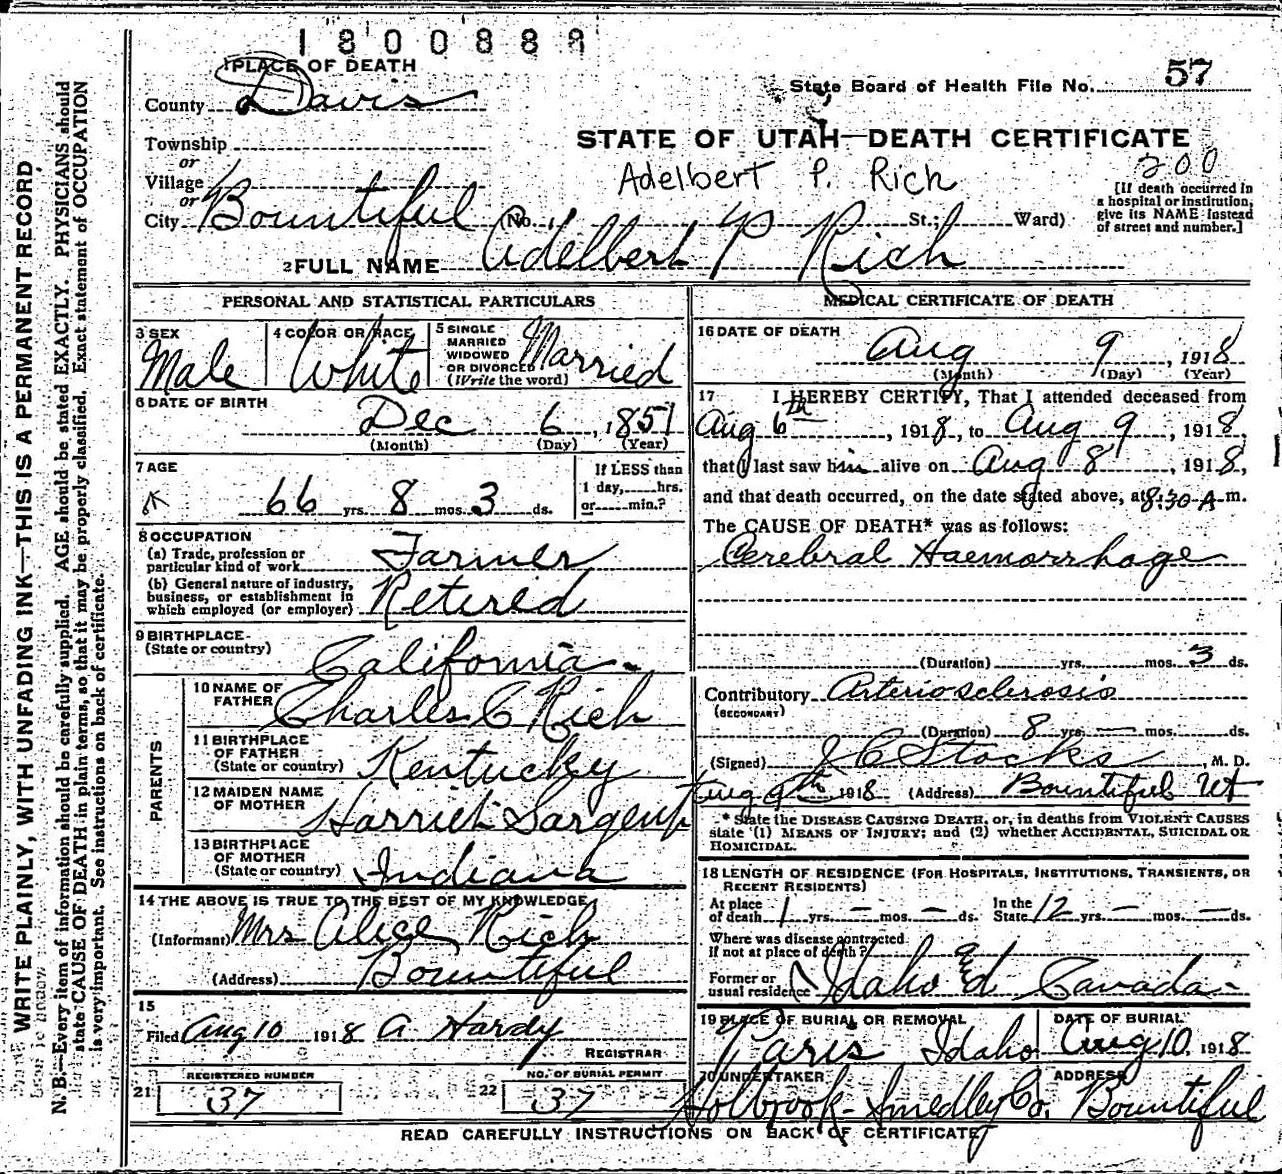 1800888
1 PLACE OF DEATH
County Davis
State Board of Health File No. 57
Township
or
Village
or
City Bountiful No. St.; Ward)
STATE OF UTAH—DEATH CERTIFICATE
Adelbert P. Rich
200
[If death occurred in
a hospital or institution,
give its NAME instead
of street and number.]
2 FULL NAME Adelbert P Rich
PERSONAL AND STATISTICAL PARTICULARS
3 SEX
Male
4 COLOR OR RACE
White
5 SINGLE
MARRIED
WIDOWED
OR DIVORCED
(Write the word)
Married
6 DATE OF BIRTH
Dec 6, 1851
(Month) (Day) (Year)
7 AGE
66 yrs. 8 mos. 3 ds.
If LESS than
1 day,.....hrs.
or.....min.?
8 OCCUPATION
(a) Trade, profession or
particular kind of work Farmer
(b) General nature of industry,
business, or establishment in
which employed (or employer) Retired
9 BIRTHPLACE
(State or country) California
PARENTS
10 NAME OF
FATHER Charles C Rich
11 BIRTHPLACE
OF FATHER
(State or country) Kentucky
12 MAIDEN NAME
OF MOTHER Harriet Sargent
13 BIRTHPLACE
OF MOTHER
(State or country) Indiana
14 THE ABOVE IS TRUE TO THE BEST OF MY KNOWLEDGE
(Informant) Mrs Alice Rich
(Address) Bountiful
15
Filed Aug 10 1918 A. Hardy
REGISTRAR
21 REGISTERED NUMBER
37
22 NO. OF BURIAL PERMIT
37
MEDICAL CERTIFICATE OF DEATH
16 DATE OF DEATH
Aug 9, 1918
(Month) (Day) (Year)
17 I HEREBY CERTIFY, That I attended deceased from
Aug 6th, 1918, to Aug 9, 1918,
that I last saw him alive on Aug 8, 1918,
and that death occurred, on the date stated above, at 8:30 A m.
The CAUSE OF DEATH* was as follows:
Cerebral Haemorrhage
(Duration) yrs. mos. 3 ds.
Contributory Arteriosclerosis
(SECONDARY)
(Duration) 8 yrs. — mos. ds.
(Signed) J C Stocks, M. D.
Aug 9th 1918 (Address) Bountiful Ut
* State the DISEASE CAUSING DEATH, or, in deaths from VIOLENT CAUSES
state (1) MEANS OF INJURY; and (2) whether ACCIDENTAL, SUICIDAL OR
HOMICIDAL.
18 LENGTH OF RESIDENCE (FOR HOSPITALS, INSTITUTIONS, TRANSIENTS, OR
RECENT RESIDENTS)
At place
of death 1 yrs. — mos. — ds. In the
State 12 yrs. — mos. — ds.
Where was disease contracted
if not at place of death?
Former or
usual residence Idaho and Canada
19 PLACE OF BURIAL OR REMOVAL
Paris Idaho
DATE OF BURIAL
Aug 10, 1918
20 UNDERTAKER
Holbrook-Smedley Co.
ADDRESS
Bountiful
READ CAREFULLY INSTRUCTIONS ON BACK OF CERTIFICATE
WRITE PLAINLY, WITH UNFADING INK—THIS IS A PERMANENT RECORD
N. B.—Every item of information should be carefully supplied. AGE should be stated EXACTLY. PHYSICIANS should
state CAUSE OF DEATH in plain terms, so that it may be properly classified. Exact statement of OCCUPATION
is very important. See instructions on back of certificate.